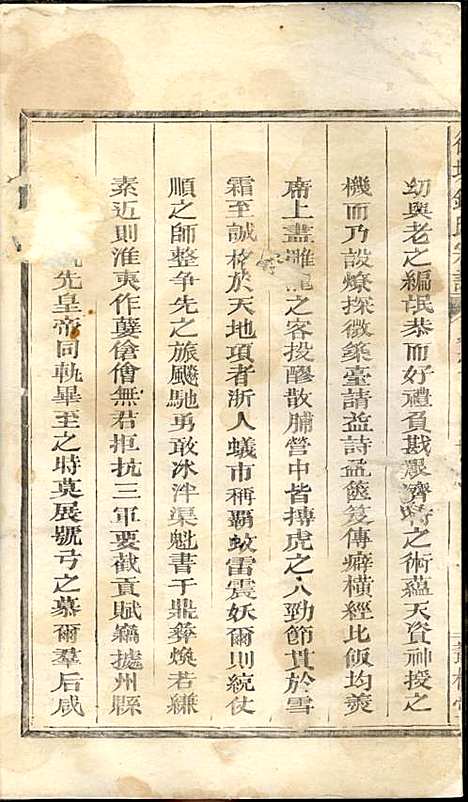 幼與老之編氓恭而好禮負戡濟時之術蘊天資神授之
機而乃設燎探微築臺請益詩盈篋笈傳癖橫經比飯均羹
席上盡雕龍之客投醪散脯營中皆搏虎之人勁節貫於雪
霜至誠格於天地項者浙人蟻市稱霸蚊雷震妖爾則統仗
順之師整爭先之旅飈馳勇敢冰泮渠魁書于鼎彝煥若縑
素近則淮夷作孽傖儈無君拒抗三軍要截貢賦竊據州縣
先皇帝同軌畢至之時莫展號弓之慕爾羣后咸